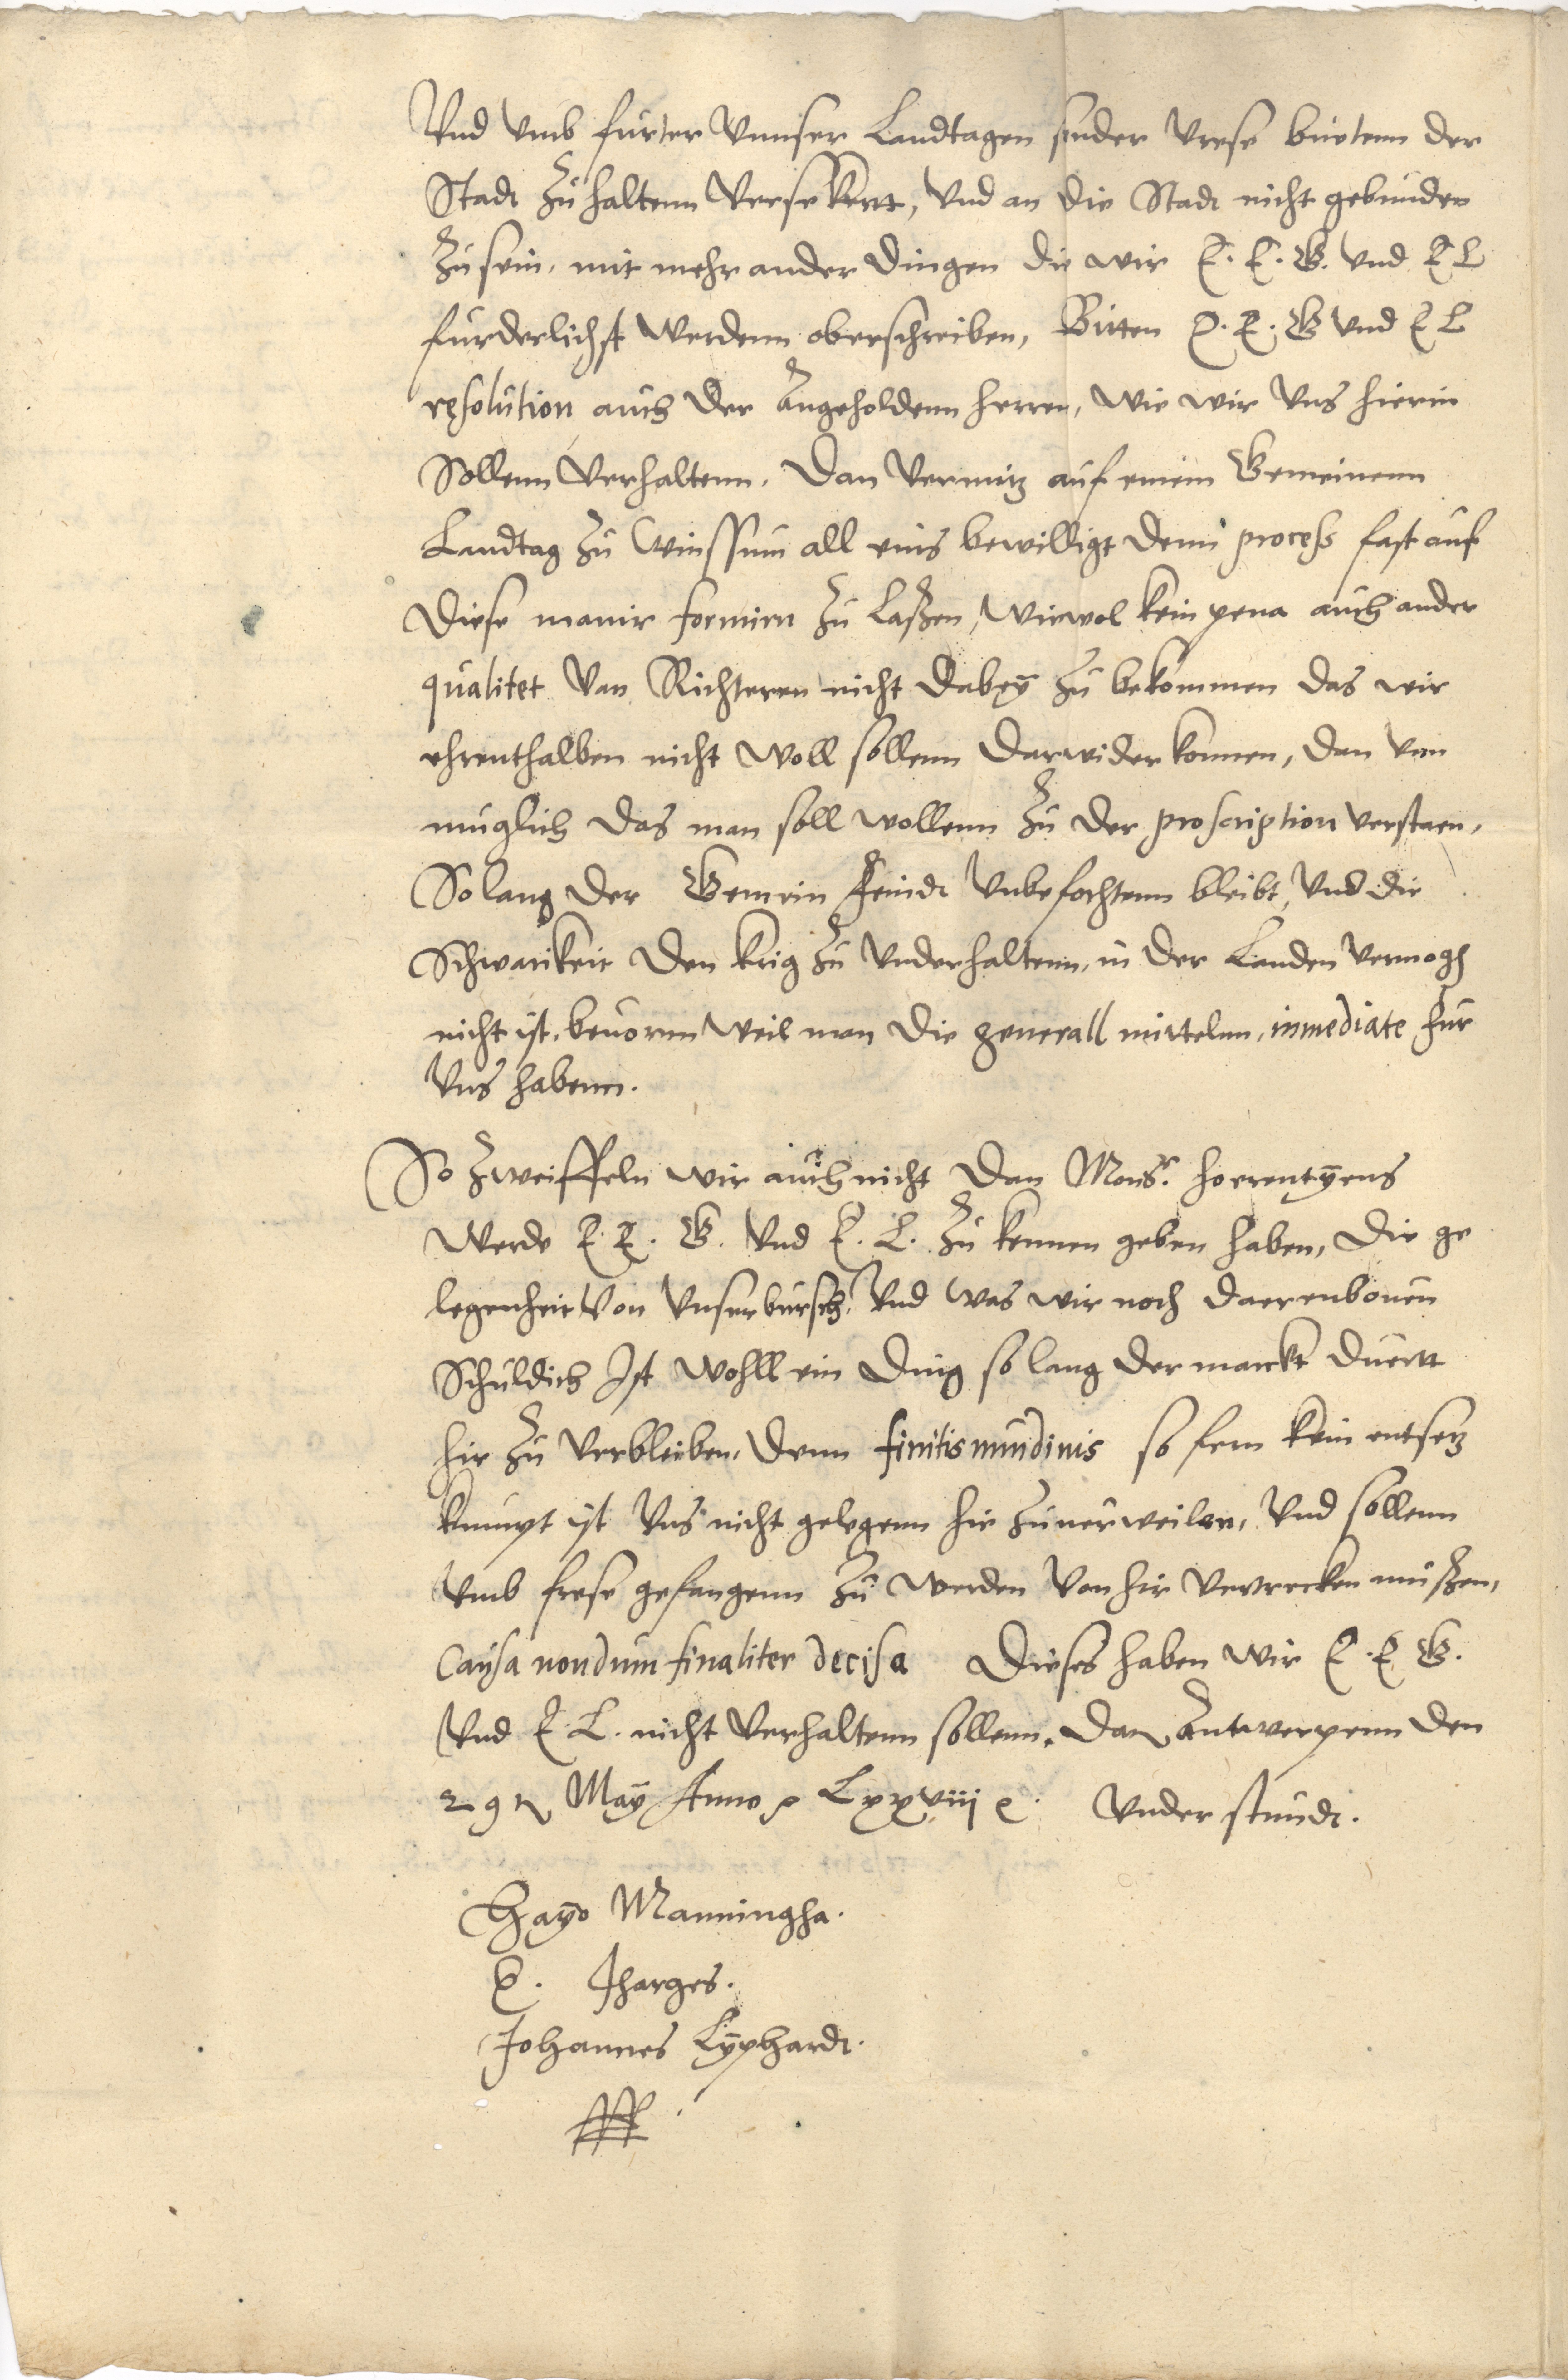 Vnd vmb furter vnnser Landtagen sunder vrese buetenn der
Stadt zu haltenn versekertt, vnd an die Stadt nicht gebunden
zu sein, mit mehr ander dingen die wir E. E. G. vnd E L
furderlichst werdenn oberschreiben, Bitten E. E. G vnd E L
resolution auch der angeholdenn herren, wie wir vns hierin
Sollenn verhaltenn. Dan vermitz auf einem Gemeinenn
Landtag zu Winssum all eins bewilligt denn process fast auf
diese manir formirn zu laßen, wiewol kein pena auch ander
qualitet van Richteren nicht dabey zu bekommen das wir
ehrenthalben nicht woll sollenn darwider konnen, dan vnn
muglich das man soll wollenn zu der proscription verstaen,
So lang der Gemein feindt vnbefochtenn bleibt, vnd die
Schwarikeit den krig zu vnderhaltenn, in der Landen vermogh
nicht ist, beuorun weil man die generall mittelnn, inmediate fur
vns habenn.
So zweiffeln wir auch nicht dan Monsr. hoerentgens
werde E. E. G. vnd E. L. zu kennen geben haben, die ge
legenheit von vnser bursch, vnd was wir noch daerenbouen
Schuldich Ist wohll ein ding so lang der marckt duertt
hir zu verbleiben, denn finitis nundinis so fern kein entsetz
kumpt ist vns nicht gelegenn hir zuuerweilen, vnd sollenn
vmb frese gefangenn zu werden von hir vertrecken mußen,
Causa nondum finaliter decisa Dieses haben wir E. E G.
vnd E. L. nicht verhaltenn sollenn. Dat Antwerpenn den
29n May Anno Lxxviij Vnder stundt.
Hayo Manningha.
E. Jharges.
Johannes Lyphardt.